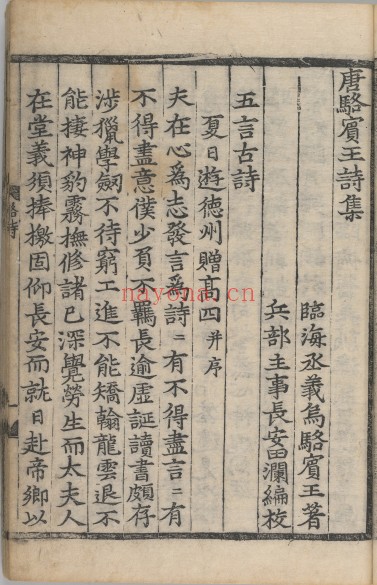 唐駱賓王詩集
臨海丞義烏駱賓王著
兵部主事長安田瀾編校
五言古詩
夏日遊德州贈高四并序
夫在心爲志發言爲詩〻有不得盡言〻有
不得盡意僕少負不羈長逾虛誕讀書頗存
涉獵學劔不待窮工進不能矯翰龍雲退不
能捿神豹霧撫修諸己深覺勞生而太夫人
在堂義須捧檄固仰長安而就日赴帝鄉以
nayona.cn